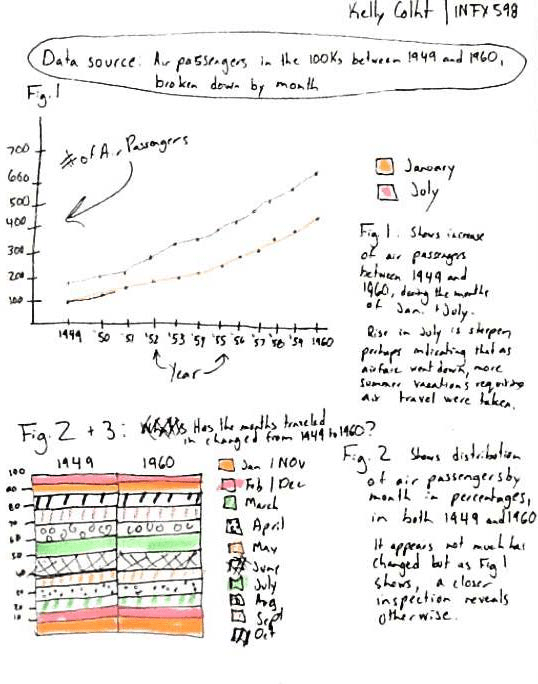 Kelly Colht | INFX 598
Data source: Air passengers in the 100Ks between 1949 and 1960,
broken down by month
Fig. 1
# of Air Passengers
700
600
500
400
300
200
100
1949 '50 '51 '52 '53 '54 '55 '56 '57 '58 '59 1960
Year
January
July
Fig 1. Shows increase
of air passengers
between 1949 and
1960, during the months
of Jan. + July.
Rise in July is steeper,
perhaps indicating that as
airfare went down, more
summer vacations requiring
air travel were taken.
Fig. 2 + 3: Has the months traveled
in changed from 1949 to 1960?
1949 1960
100
90
80
70
60
50
40
30
20
10
Jan / Nov
Feb / Dec
March
April
May
June
July
Aug
Sept
Oct
Fig. 2 Shows distribution
of air passengers by
month in percentages,
in both 1949 and 1960
It appears not much has
changed but as Fig 1
shows, a closer
inspection reveals
otherwise.